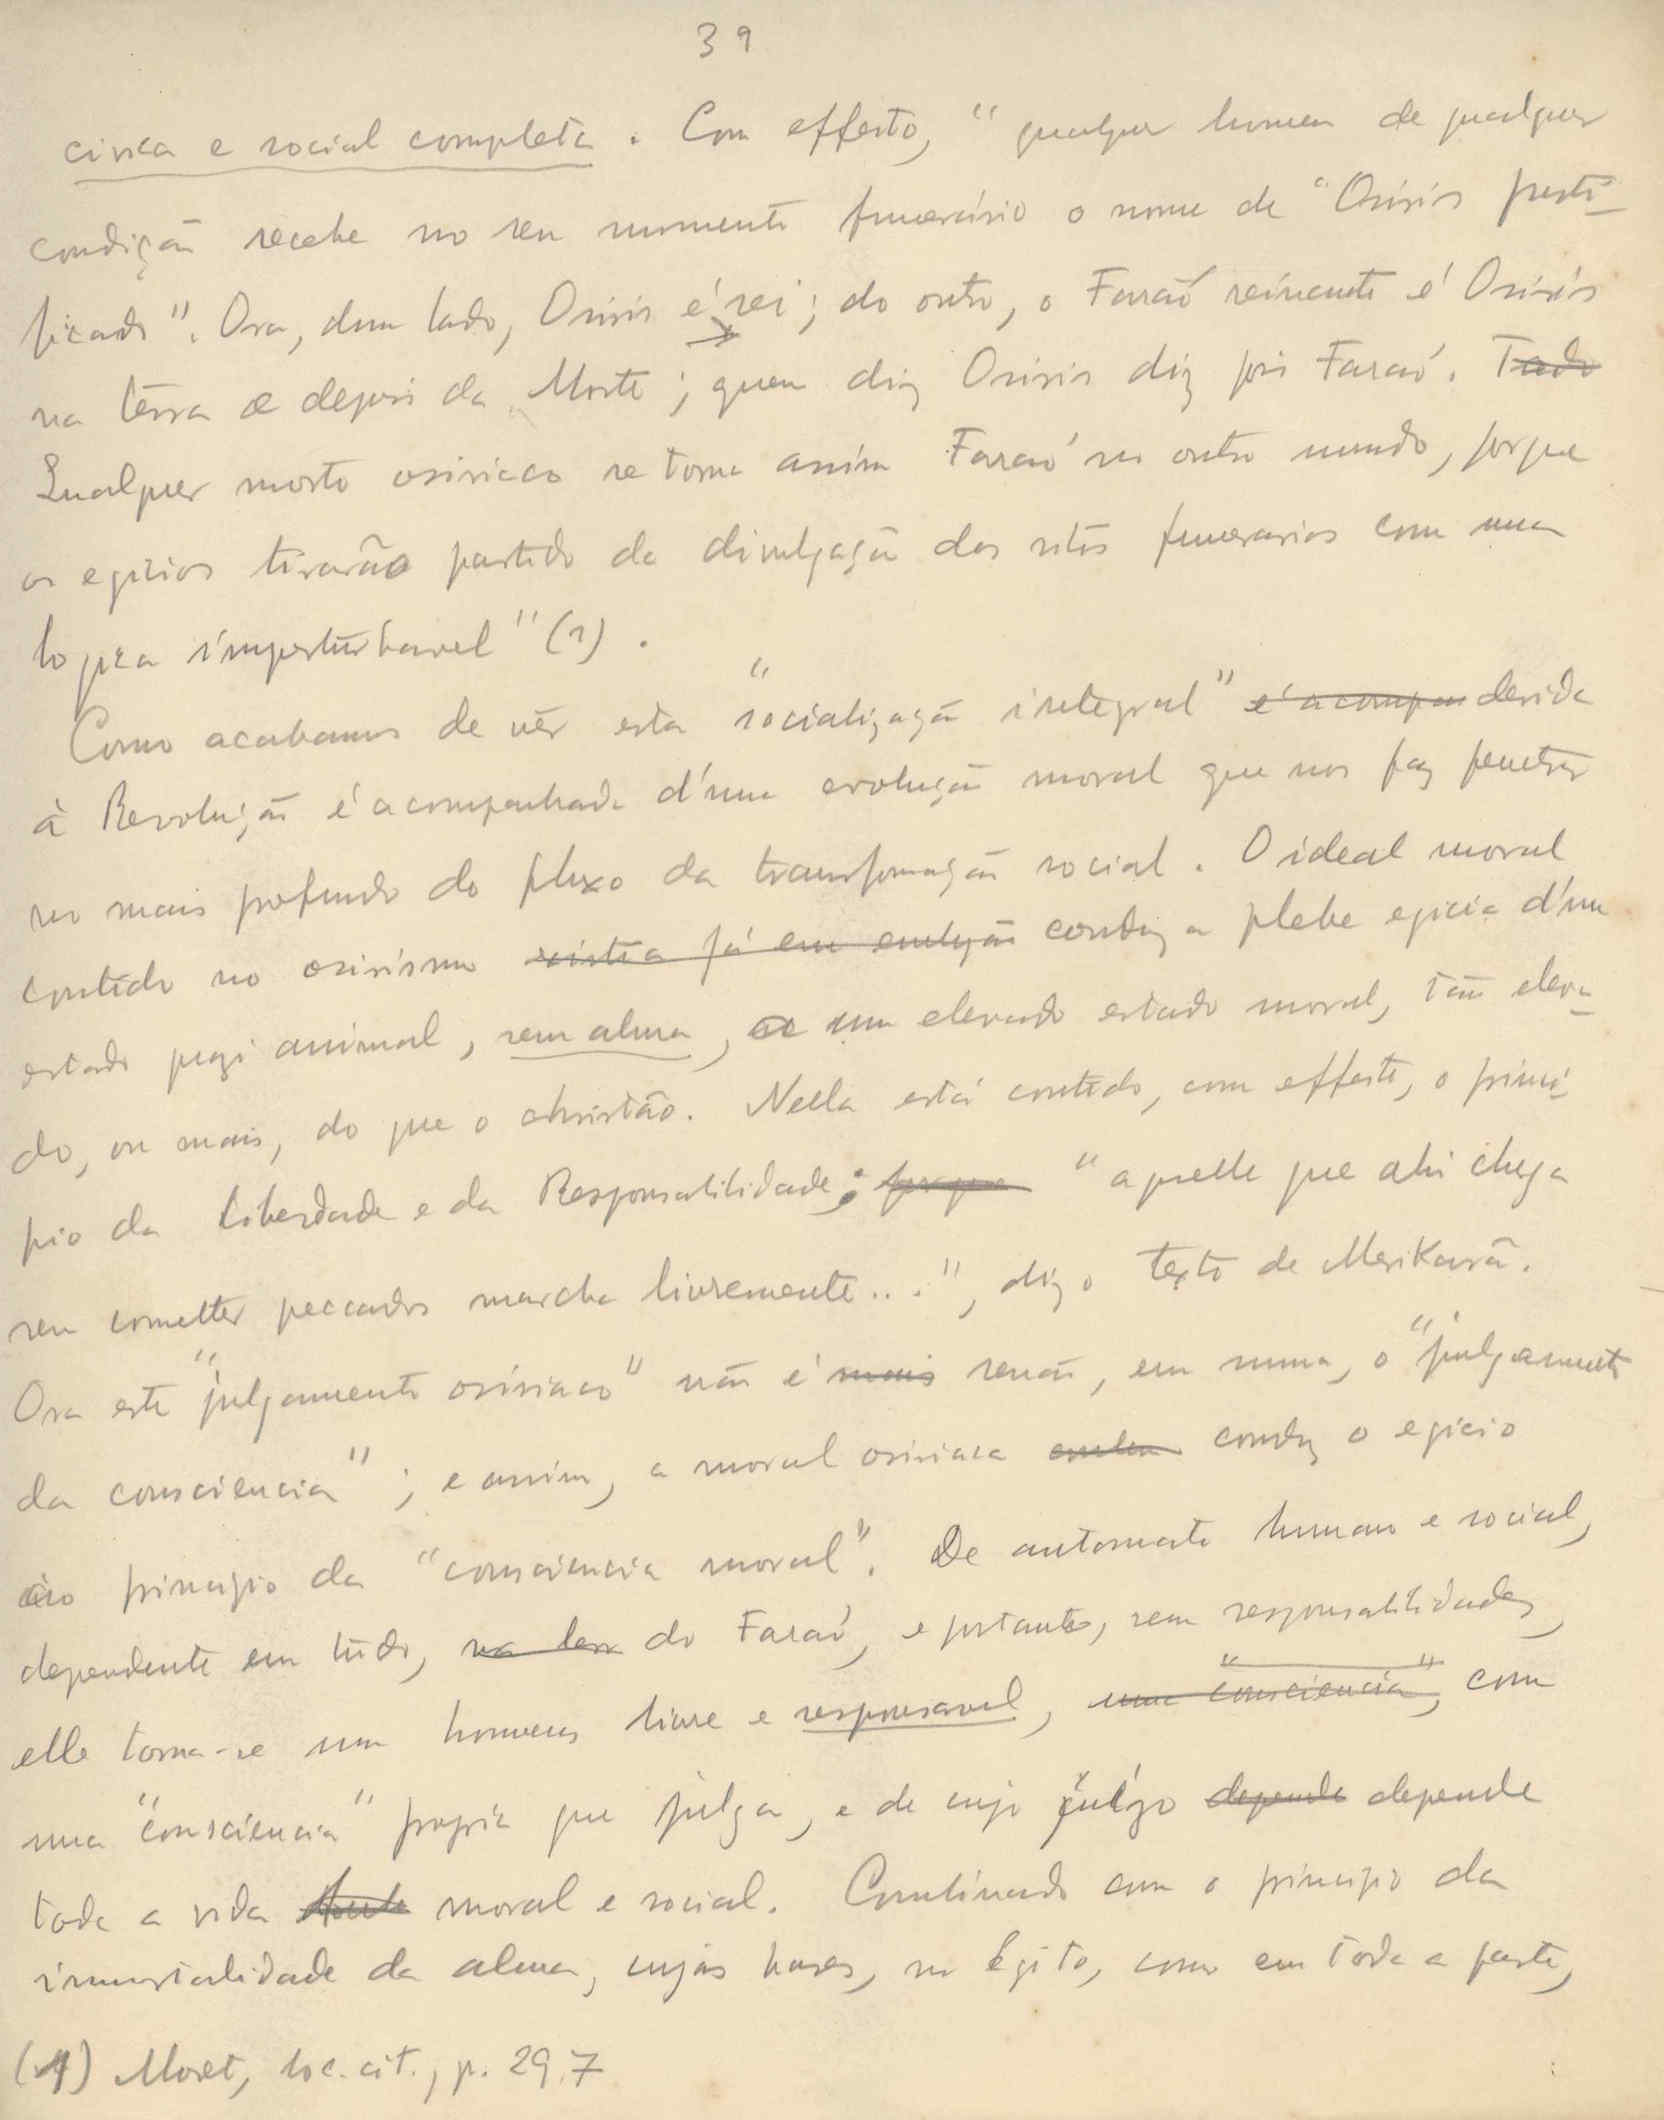 39
civica e social completa. Com effeito, "qualquer homem de qualquer
condição recebe no seu momento funerário o nome de "Osiris justi-
ficado". Ora, dum lado, Osiris é rei; do outro, o Faraó reinante é Osiris
na terra e depois da Morte; quem diz Osiris diz pois Faraó. Todo
Qualquer morto osiriaco se torna assim Faraó no outro mundo, porque
os egicios tirarão partido da divulgação dos ritos funerarios com uma
logica imperturbavel" (1).
Como acabamos de vêr esta "socialização integral" é acompan devida
à Revolução é acompanhada d'uma evolução moral que nos faz penetrar
no mais profundo do fluxo da transformação social. O ideal moral
contido no osirismo existia já em evolução conduz a plebe egicia d'um
estado quazi animal, sem alma, a um elevado estado moral, tão eleva-
do, ou mais, do que o christão. Nella está contido, com effeito, o princi-
pio da Liberdade e da Responsabilidade; porque "aquelle que ahi chega
sem cometter peccados marcha livremente...", diz o texto de Merikarâ.
Ora este "julgamento osiriaco" não é mais senão, em suma, o "julgamento
da consciencia"; e assim, a moral osiriaca conduz o egicio
ao principio da "consciencia moral". De automato humano e social,
dependente em tudo, na terra do Faraó, e portanto, sem responsabilidades,
elle torna-se um homem livre e responsavel, uma "consciencia", com
uma "consciencia" propria que julga, e de cujo julgo depende depende
toda a vida moral e social. Combinado com o principio da
immortalidade da alma, cujas bases, no Egito, como em toda a parte,
(1) Moret, loc. cit., p. 297